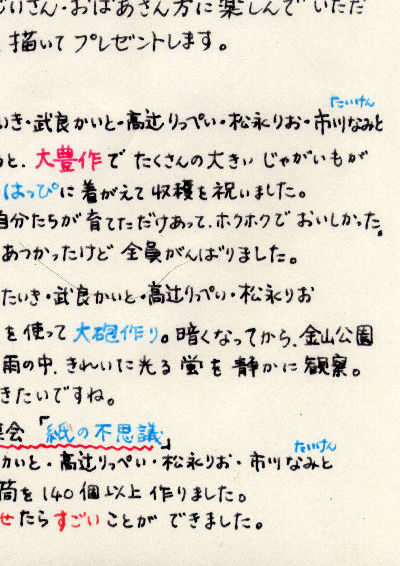 じいさん・おばあさん方に楽しんでいただ
描いてプレゼントします。
たいけん
いき・武良かいと・高辻りっぺい・松永りお・市川なみと
ると、大豊作でたくさんの大きいじゃがいもが
はっぴに着がえて収穫を祝いました。
自分たちが育てただけあって、ホクホクでおいしかった。
あつかったけど全員がんばりました。
たいき・武良かいと・高辻りっぺい・松永りお
を使って大砲作り。暗くなってから、金山公園
雨の中、きれいに光る蛍を静かに観察。
きたいですね。
会「紙の不思議」
たいけん
かいと・高辻りっぺい・松永りお・市川なみと
筒を140個以上作りました。
せたらすごいことができました。